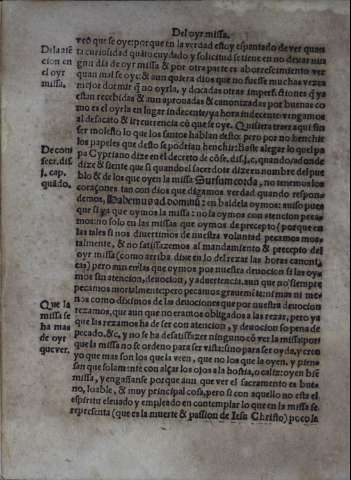 Del oyr missa.
De la atẽ
cion en
el oyr
missa.
veo que se oye: porque en la verdad estoy espantado de ver quan
ta curiosidad quãto cuydado y solicitud se tiene en no dexar nin
gun dia de oyr missa & por otra parte es aborrescimiento ver
quan mal se oye: & aun quiera dios que no fuesse muchas vezes
mejor dormir q̃ no oyrla, y dexadas otras imperfectiones q̃ ya
estan recebidas & aun aprouadas & canonizadas por buenas co
mo es el oyrla en lugar indecente/ y a hora indecente vengamos
al desacato & irreuerencia cõ que se oye. Quisiera traer aqui sin
ser molesto lo que los santos hablan desto: pero por no henchir
los papeles que desto se podrian henchir: baste alegar lo que el pa
De con
secr. dis.
j, cap.
quãdo.
pa Cypriano dize en el decreto de cõse. dis. j. c. quando/ adonde
dize & siente que si quando el sacerdote dize en nombre del pue
blo & de los que oyen la missa Sursum corda, no tenemos los
coraçones tan con dios que digamos verdad quando respon-
demos, Habemus ad dominũ: en balde la oymos: auiso pues
que siẽpre que oymos la missa: no la oymos con atencion peca-
mos: no solo en las missas que oymos de precepto (porque en
las tales si nos diuertimos de nuestra voluntad pecamos mor-
talmente, & no satisfazemos al mandamiento & precepto del
oyr missa (como arriba dixe en lo del rezar las horas canoni-
cas) pero aun en las que oymos por nuestra deuocion si las oy-
mos sin atencion, deuocion, y aduertencia. aun que no siempre
pecamos mortalmente: pero pecamos grauemẽte: ni mas ni me-
nos como diximos de las deuociones que por nuestra deuocion
Que la
missa se
ha mas
de oyr
que ver.
rezamos, que aun que no eramos obligados a las rezar, pero ya
que las rezamos ha de ser con atencion, y deuocion so pena de
pecado. &c, y no se ha de satisfazer ninguno cõ ver la missa: por
que la missa no se ordeno para ser vista: sino para ser oyda, y creo
yo que mas son los que la veen, que no los que la oyen, y pien-
san que solamente con alçar los ojos a la hostia, o caliz: oyen biẽ
missa, y engañanse porque aun que ver el sacramento es bue
no, loable, & muy principal cosa, pero si con aquello no esta el
espiritu eleuado y empleado en contemplar lo que en la missa se
representa (que es la muerte & passion de Iesu Christo) poco le